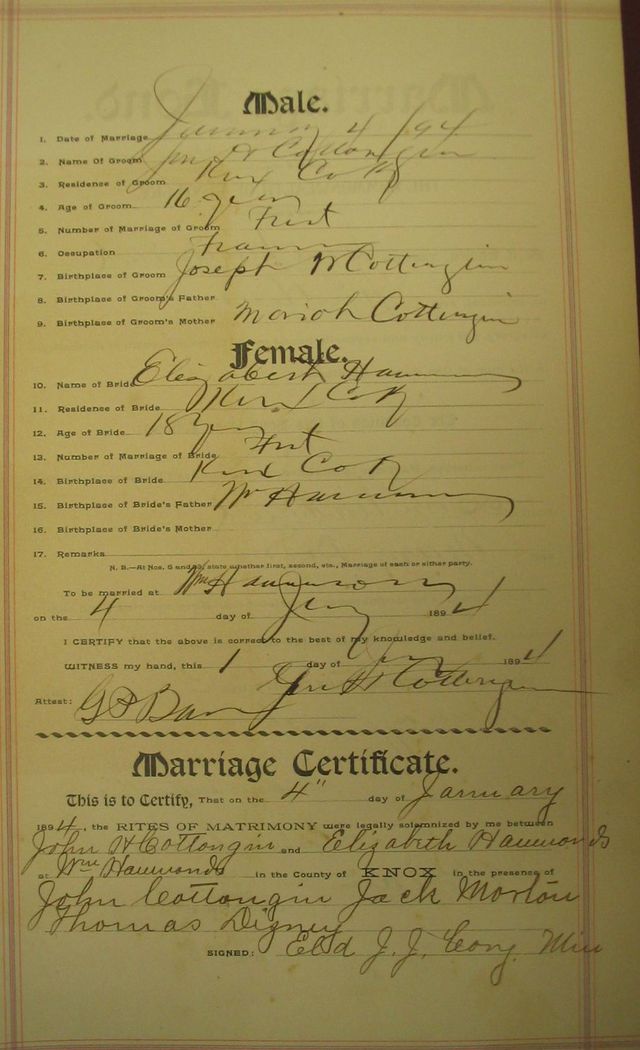 Male.
1. Date of Marriage January 4 1894
2. Name Of Groom Jno H Cottongim
3. Residence of Groom Knox Co Ky
4. Age of Groom 16 years
5. Number of Marriage of Groom First
6. Occupation Farmer
7. Birthplace of Groom Joseph W Cottengim
8. Birthplace of Groom's Father
9. Birthplace of Groom's Mother Moriah Cottengim
Female.
10. Name of Bride Elizabeth Hammons
11. Residence of Bride Knox Co Ky
12. Age of Bride 18 years
13. Number of Marriage of Bride First
14. Birthplace of Bride Knox Co Ky
15. Birthplace of Bride's Father Wm Hammons
16. Birthplace of Bride's Mother
17. Remarks
N. B.—At Nos. 5 and 13, state whether first, second, etc., Marriage of each or either party.
To be married at Wm Hammons
on the 4 day of Jany 1894
I CERTIFY that the above is correct to the best of my knowledge and belief.
WITNESS my hand, this 1 day of Jany 1894
Jno H Cottengim
Attest:
Marriage Certificate.
This is to Certify, That on the 4" day of January
1894, the RITES OF MATRIMONY were legally solemnized by me between
John H Cottongin and Elizabeth Hammonds
at Wm Hammonds in the County of KNOX in the presence of
John Cottongin Jack Morton
Thomas Digney
SIGNED: Eld J. J. Cong. Min